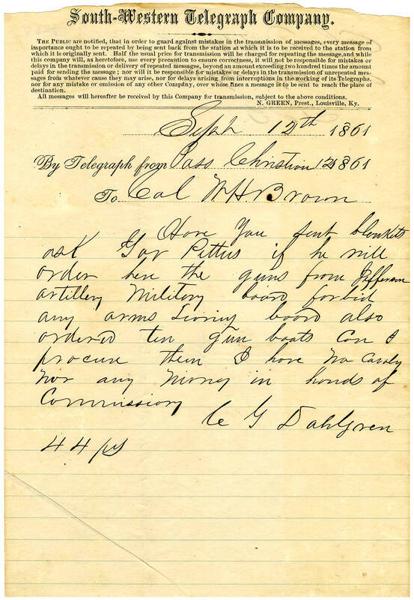 South-Western Telegraph Company.
THE PUBLIC are notified, that in order to guard against mistakes in the transmission of messages, every message of
importance ought to be repeated by being sent back from the station at which it is to be received to the station from
which it is originally sent. Half the usual price for transmission will be charged for repeating the message, and while
this company will, as heretofore, use every precaution to ensure correctness, it will not be responsible for mistakes or
delays in the transmission or delivery of repeated messages, beyond an amount exceeding two hundred times the amount
paid for sending the message; nor will it be responsible for mistakes or delays in the transmission of unrepeated mess-
ages from whatever cause they may arise, nor for delays arising from interruptions in the working of its Telegraphs,
nor for any mistake or omission of any other Company, over whose lines a message is to be sent to reach the place of
destination.
All messages will hereafter be received by this Company for transmission, subject to the above conditions.
N. GREEN, Prest., Louisville, Ky.
Sept 12th 1861
By Telegraph from Pass Christian 12 1861
To Col W H Brown
Have You sent blankets
ask Gov Pettus if he will
order here the guns from Jefferson
artillery Military board forbid
any arms leaving board also
ordered ten gun boats Can I
procure them I have no Cavly
nor any Money in hands of
Commission
C G Dahlgren
44 pd